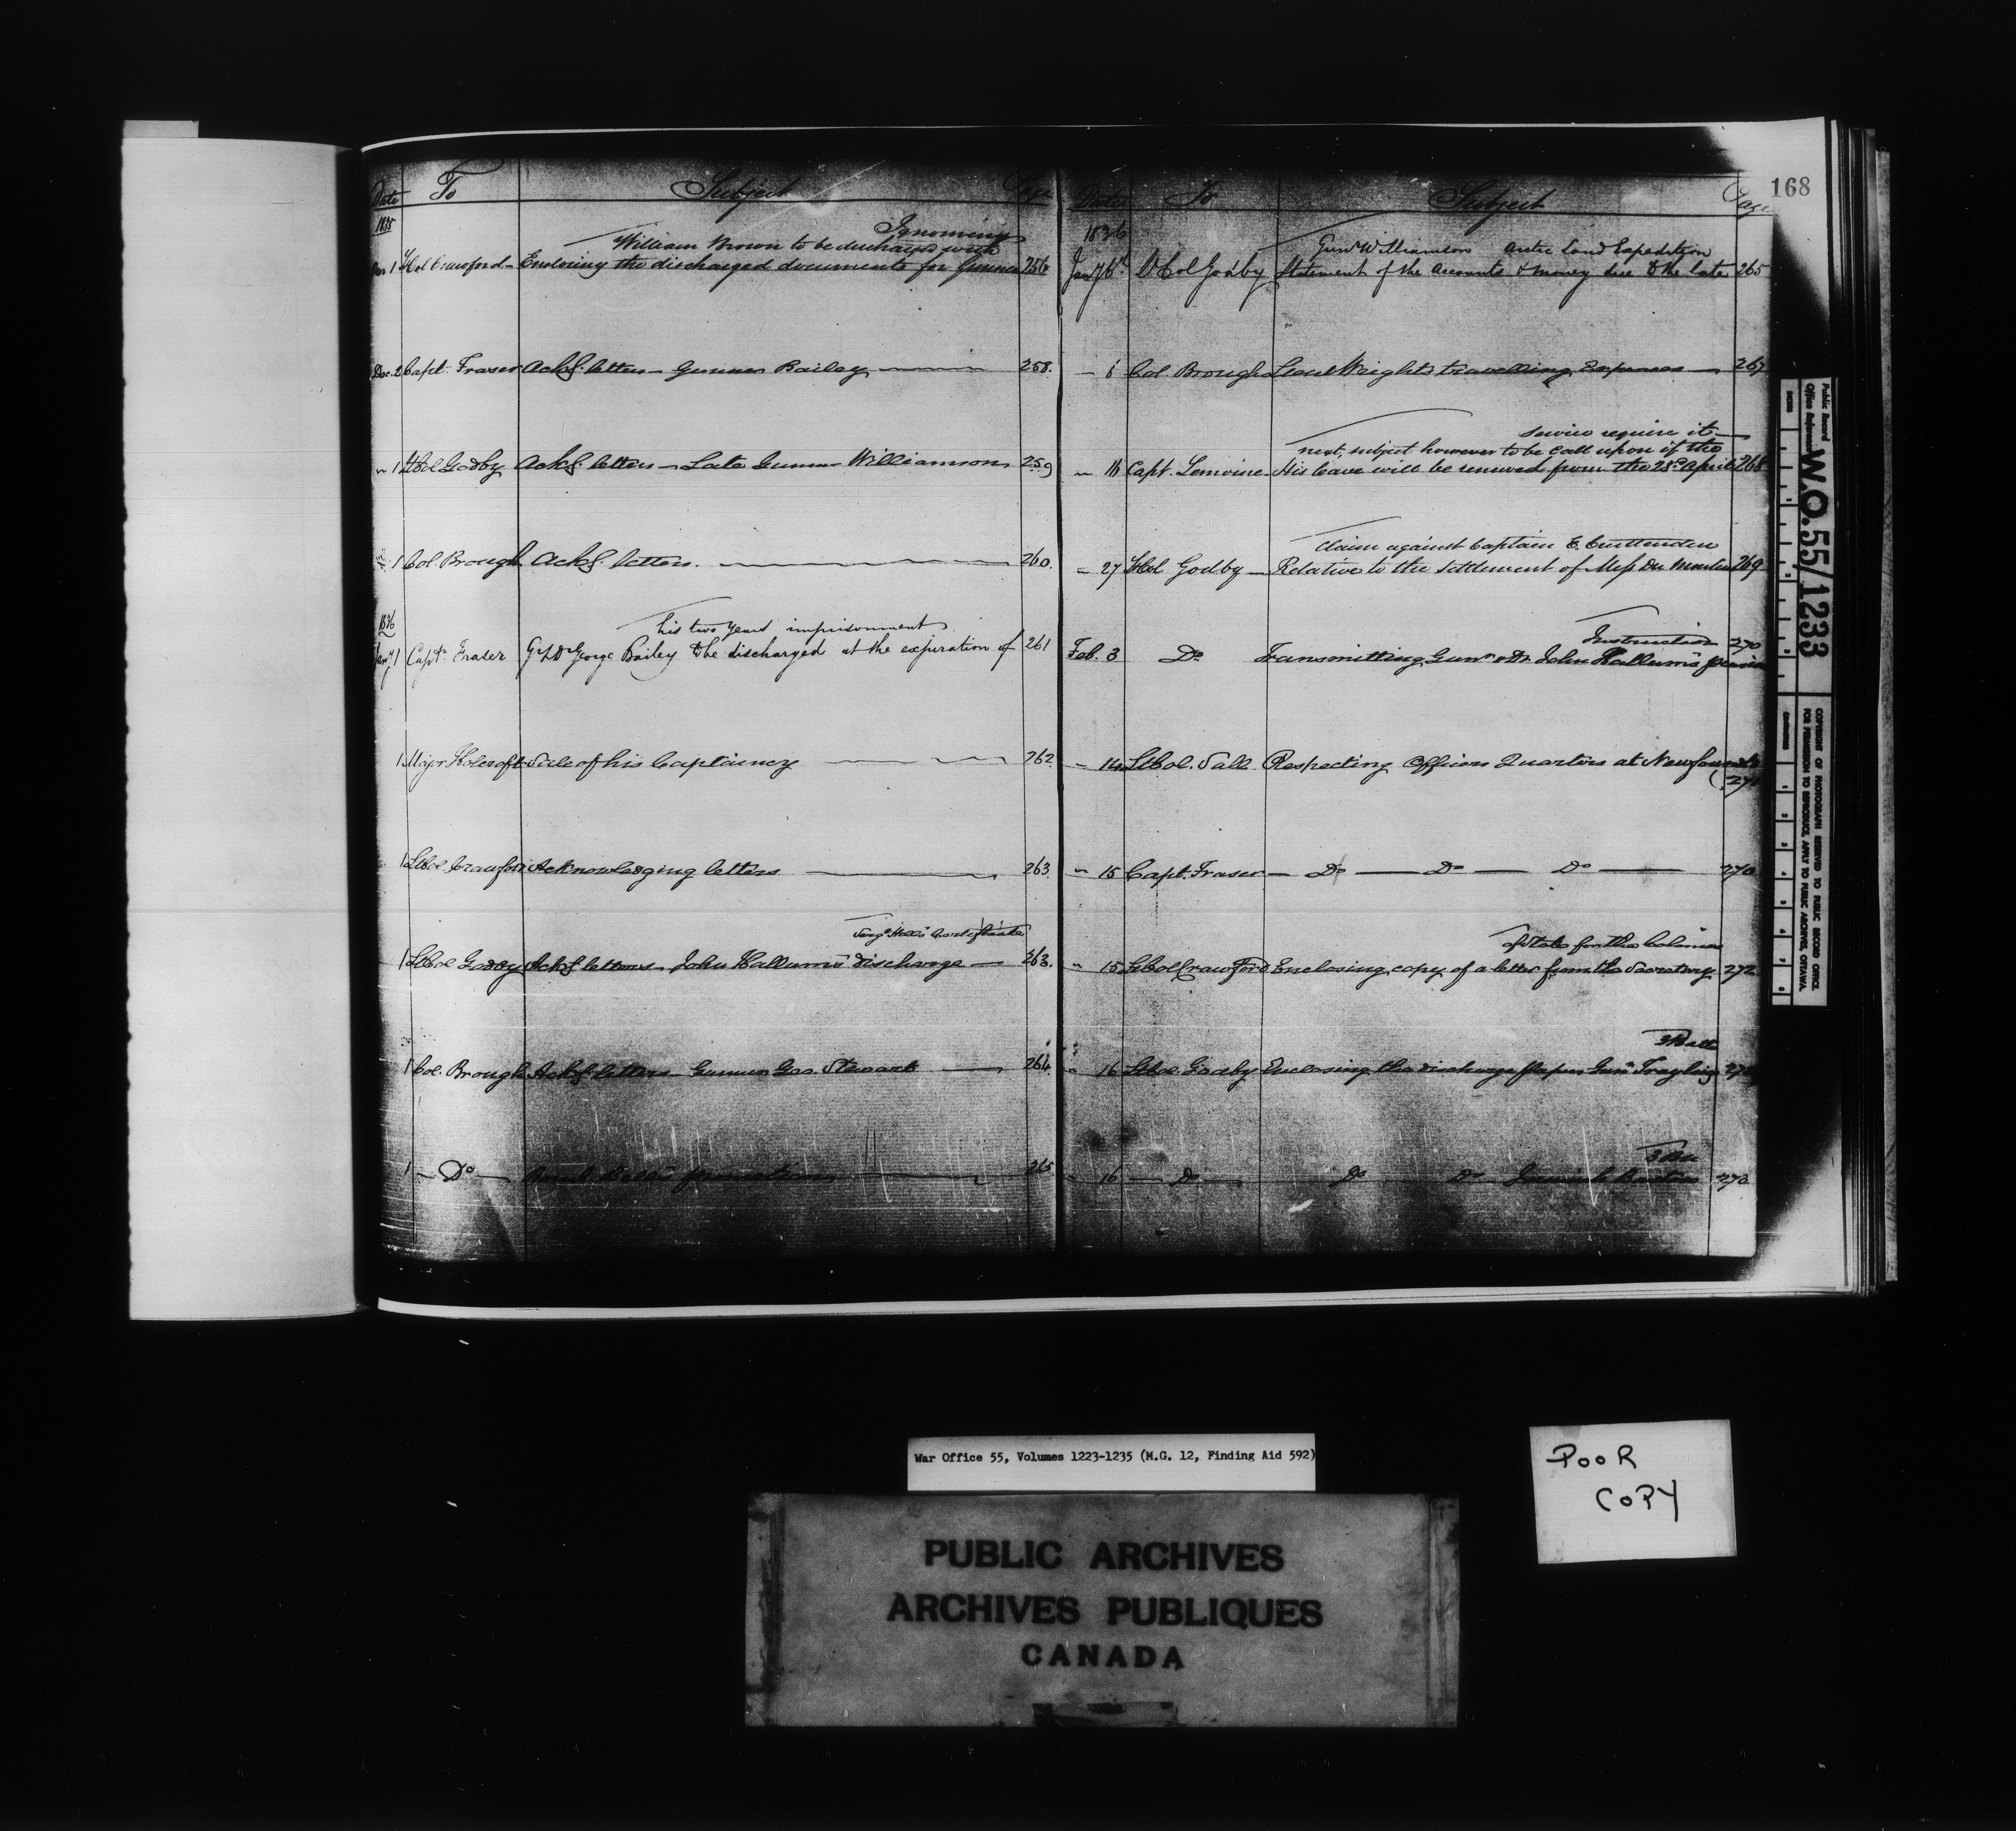 168
Date To Subject Page
1835
Ignominy
William Brown to be discharged with
1 Lt Col Crawford - Enclosing the discharged documents for Gunner 256
Dec. 2 Capt. Fraser Ackg. letter - Gunner Bailey 258.
" 1 Lt Col Godby Ackg. letter - Late Gunner Williamson 259
1 Col. Brough Ackg. letter. 260.
1836
his two years imprisonment
Jany. 1 Captn. Fraser Gr & Dr George Bailey to be discharged at the expiration of 261
1 Major Holcroft Sale of his Captaincy 262
1 Lt Col. Crawford Acknowledging letters 263.
Sergt. Hill's Certificate
1 Lt Col Godby Ackg. letters - John Hallum's discharge 263.
1 Col. Brough Ackg. letters - Gunner Geo. Stewart 264.
1 - Do - 265
Date To Subject Page
1836
Gunr Williamson Arctic Land Expedition
Jany 6th Lt Col Godby Statement of the Accounts & money due to the late 265
- 6 Col. Brough Lieut Wright's travelling Expenses 267
Service require it
next, subject however to be call upon if the
" 16 Capt. Lemoine - His leave will be renewed from the 23d April 268
Claim against Captain E. Cruttenden
- 27 Lt Col Godby - Relative to the settlement of Mess Du Moulin 269
Instruction 270
Feb. 3 Do Transmitting Gunr & Dr John Hallum's pension
- 14 Lt Col. Sall Respecting Officers Quarters at Newfound
271
" 15 Capt. Fraser - Do - Do - Do 270
of State for the Colonies
" 15 Lt Col Crawford Enclosing copy of a letter from the Secretary 272
3 Batt
" 16 Lt Col. Godby Enclosing the discharge papers Gunr
" 16 - Do - Do Do 273
Public Record
Office Reference
W.O. 55/1233
COPYRIGHT OF PHOTOGRAPH RESERVED TO PUBLIC RECORD OFFICE
FOR PERMISSION TO REPRODUCE, APPLY TO PUBLIC ARCHIVES, OTTAWA.
INCHES
War Office 55, Volumes 1223-1235 (M.G. 12, Finding Aid 592)
PUBLIC ARCHIVES
ARCHIVES PUBLIQUES
CANADA
POOR
COPY